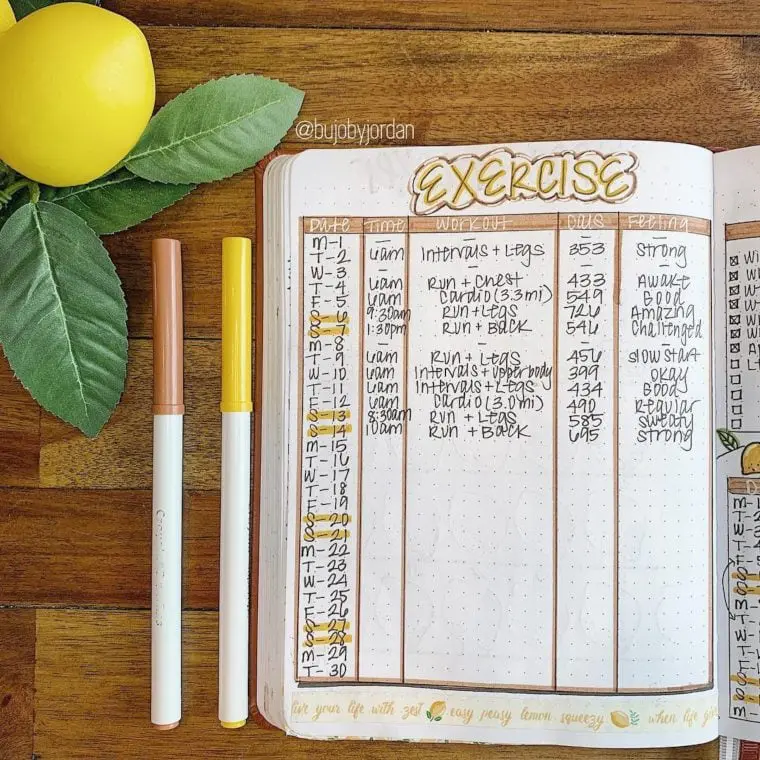 @bujobyjordan
EXERCISE
Date Time Workout Cals Feeling
M-1 — — — —
T-2 6am Intervals + Legs 353 Strong
W-3 — — — —
T-4 6am Run + Chest 433 Awake
F-5 6am Cardio (3.3mi) 549 Good
S-6 9:30am Run + Legs 726 Amazing
S-7 1:30pm Run + Back 546 Challenged
M-8 — — — —
T-9 6am Run + Legs 456 slow start
W-10 6am Intervals + Upper body 399 okay
T-11 6am Intervals + Legs 434 Good
F-12 6am Cardio (3.0mi) 490 Regular
S-13 8:30am Run + Legs 585 sweaty
S-14 10am Run + Back 695 strong
M-15
T-16
W-17
T-18
F-19
S-20
S-21
M-22
T-23
W-24
T-25
F-26
S-27
S-28
M-29
T-30
live your life with zest easy peasy lemon squeezy when life